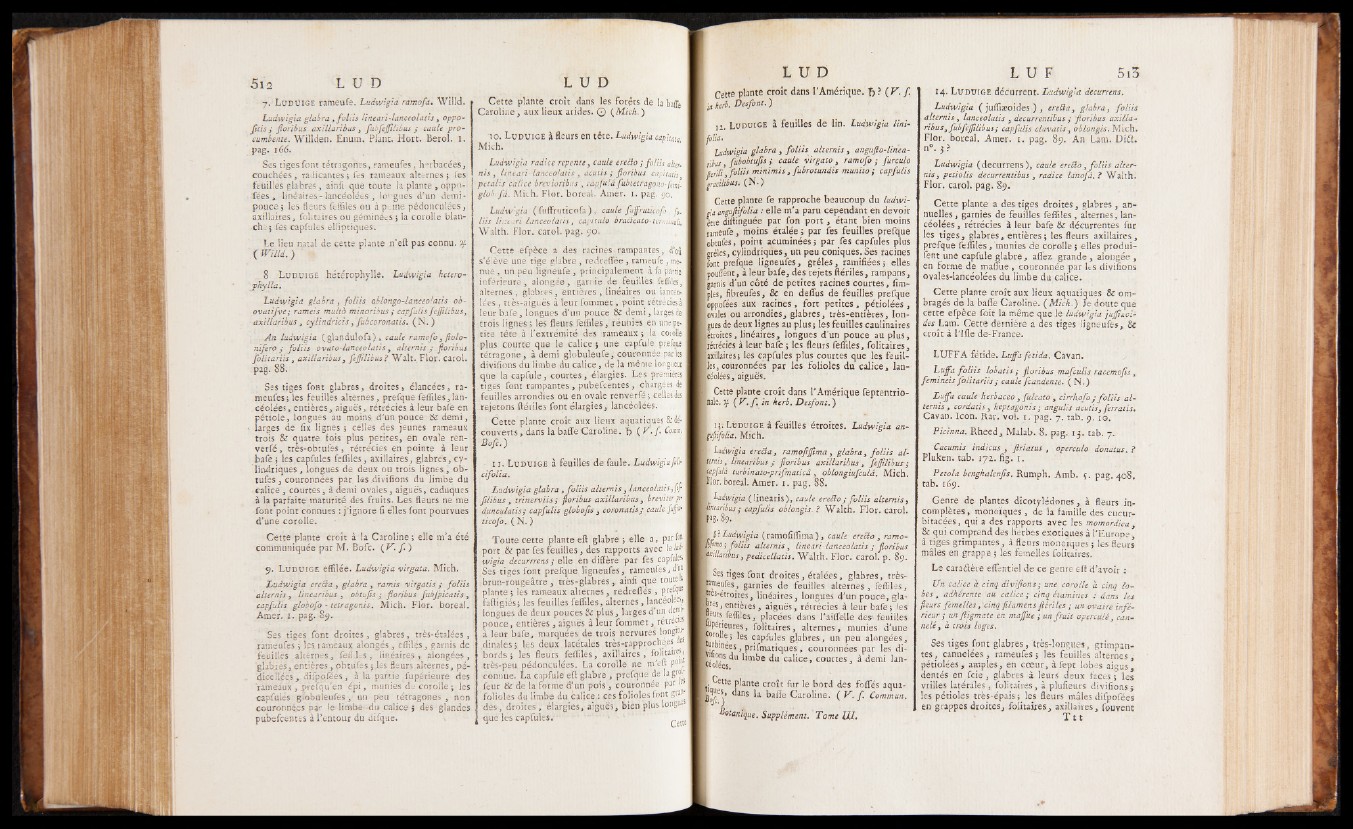 512 L U D
7. LUDUIGE rameuse. Ludwigia ramosa. Willd.
Ludwigia glabra, foliis lineari-lanceolatis, oppo-
sitis; floribus axillaribus, subsessilibus; caule pro-
cumbente. Willden. Enum. Plant. Hort. Berol. 1.
pag. 166.
Ses tiges sont tétragones, rameuses, herbacées,
couchées, radicantes; les rameaux alternes; les
feuilles glabres, ainsi que toute la plante, oppo-
sées, linéaires-lancéolées, longues d'un demi-
pouce; les fleurs sessiles ou à peine pédonculées,
axillaires, solitaires ou géminées; la corolle blan-
che; ses capsules elliptiques.
Le lieu natal de cette plante n'est pas connu. ♃
( Willd. )
8 LUDUIGE hétérophylle. Ludwigia hetero-
phylla.
Ludwigia glabra, foliis oblongo-lanceolatis ob-
ovatisve; rameis multò minoribus; capsulis sessilibus,
axillaribus, cylindricis, subcoronatis. ( N. )
An ludwigia (glandulosa), caule ramoso, stolo-
nifero; foliis ovato-lanceolatis, alternis; floribus
solitariis, axillaribus, sessilibus? Walt. Flor. carol.
pag. 88.
Ses tiges sont glabres, droites, élancées, ra-
meuses; les feuilles alternes, presque sessiles, lan-
céolées, entières, aiguës, rétrécies à leur base en
pétiole, longues au moins d'un pouce & demi,
larges de six lignes; celles des jeunes rameaux
trois & quatre fois plus petites, en ovale ren-
versé, très-obtuses, rétrécies en pointe à leur
base; les capsules sessiles, axillaires, glabres, cy-
lindriques, longues de deux ou trois lignes, ob-
tuses, couronnées par les divisions du limbe du
calice, courtes, à demi ovales, aiguës, caduques
à la parfaite maturité des fruits. Les fleurs ne me
sont point connues: j'ignore si elles sont pourvues
d'une corolle.
Cette plante croît à la Caroline; elle m'a été
communiquée par M. Bosc. ( V. s. )
9. LUDUIGE effilée. Ludwigia virgata. Mich.
Ludwigia erecta, glabra, ramis virgatis; foliis
alternis, linearibus, obtusis; floribus subspicatis,
capsulis globoso-tetragonis. Mich. Flor. boreal.
Amer. 1. pag. 89.
Ses tiges sont droites, glabres, très-étalées,
rameuses; les rameaux alongés, effilés, garnis de
feuilles alternes, sessiles, linéaires, alongées,
glabres, entières, obtuses; les fleurs alternes, pé-
dicellées, disposées, à la partie supérieure des
rameaux, presqu'en épi, munies de corolle; les
capsules globuleuses, un peu tétragones, non
couronnées par le limbe du calice; des glandes
pubescentes à l'entour du disque.
L U D
Cette plante croît dans les forêts de la basse
Caroline, aux lieux arides. ☉ ( Mich. )
10. LUDUIGE à fleurs en tête. Ludwigia capitata.
Mich.
Ludwigia radice repente, caule erecto; foliis alter-
nis, lineari-lanceolatis, acutis; floribus capitatis,
petalis calice brevioribus, capsulâ subtetragono-semi-
glob sâ. Mich. Flor. boreal. Amer. 1. pag. 90.
Ludwigia (suffruticosa), caule suffruticoso; fo-
liis lineari-lanceolatis, capitulo bracteato
Walth. Flor. carol. pag. 90.
Cette espèce a des racines rampantes, d'où
s'élève une tige glabre, redressée, rameuse, me-
nue, un peu ligneuse, principalement à sa partie
inférieure, alongée, garnie de feuilles sessiles,
alternes, glabres, entières, linéaires ou lancéo-
lées, très-aiguës à leur sommet, point rétrécies à
leur base, longues d'un pouce & demi, larges de
trois lignes; les fleurs sessiles, réunies en une pe-
tite tête à l'extrémité des rameaux; la corolle
plus courte que le calice; une capsule presque
tétragone, à demi globuleuse, couronnée par les
divisions du limbe du calice, de la même longueur
que la capsule, courtes, élargies. Les premières
tiges sont rampantes, pubescentes, chargées de
feuilles arrondies ou en ovale renversé; celles des
rejetons stériles sont élargies, lancéolées.
Cette plante croît aux lieux aquatiques & dé-
couverts, dans la basse Caroline. ♄ ( V. s. Comm.
Bosc. )
11. LUDUIGE à feuilles de saule. Ludwigia sali-
cifolia.
Ludwigia glabra, foliis alternis, lanceolatis, ses-
silibus, trinerviis; floribus axillaribus, breviter pe-
dunculatis; capsulis globosis, coronatis; caule suffru-
ticoso. ( N. )
Toute cette plante est glabre; elle a, par son
port & par ses feuilles, des rapports avec le lud-
wigia decurrens; elle en diffère par ses capsules.
Ses tiges sont presque ligneuses, rameuses, d'un
brun-rougeâtre, très-glabres, ainsi que toute la
plante; les rameaux alternes, redressés, presque
fastigiés; les feuilles sessiles, alternes, lancéolées,
longues de deux pouces & plus, larges d'un demi-
pouce, entières, aiguës à leur sommet, rétrécies
à leur base, marquées de trois nervures longitu-
dinales; les deux latérales très-rapprochées des
bords; les fleurs sessiles, axillaires, solitaires,
très-peu pédonculées. La corolle ne m'est point
connue. La capsule est glabre, presque de la gros-
seur & de la forme d'un pois, couronnée par les
folioles du limbe du calice: ces folioles sont gran-
des, droites, élargies, aiguës, bien plus longues
que les capsules.
Cette
L U D
Cette plante croît dans l'Amérique. ♄? ( V. s.
in herb. Desfont. )
12. LUDUIGE à feuilles de lin. Ludwigia lini-
folia.
Ludwigia glabra, foliis alternis, angusto-linea-
ribus, subobtusis; caule virgato, ramoso; surculo
sterili, foliis minimis, subrotundis munito; capsulis
gracilibus. ( N. )
Cette plante se rapproche beaucoup du ludwi-
gia angustifolia: elle m'a paru cependant en devoir
être distinguée par son port, étant bien moins
rameuse, moins étalée; par ses feuilles presque
obtuses, point acuminées; par ses capsules plus
grêles, cylindriques, un peu coniques. Ses racines
sont presque ligneuses, grêles, ramifiées; elles
poussent, à leur base, des rejets stériles, rampans,
garnis d'un côté de petites racines courtes, sim-
ples, fibreuses, & en dessus de feuilles presque
opposées aux racines, fort petites, pétiolées,
ovales ou arrondies, glabres, très-entières, lon-
gues de deux lignes au plus; les feuilles caulinaires
étroites, linéaires, longues d'un pouce au plus,
rétrécies à leur base; les fleurs sessiles, solitaires,
axillaires; les capsules plus courtes que les feuil-
les, couronnées par les folioles du calice, lan-
céolées, aiguës.
Cette plante croît dans l'Amérique septentrio-
nale. ♃ ( V. s. in herb. Desfont. )
13. LUDUIGE à feuilles étroites. Ludwigia an-
gustifolia. Mich.
Ludwigia erecta, ramosissima, glabra, foliis al-
ternis, linearibus; floribus axillaribus, sessilibus;
capsulâ turbinato-prismaticâ, oblongiusculâ. Mich.
Flor. boreal. Amer. 1. pag. 88.
Ludwigia (linearis), caule erecto; foliis alternis,
linearibus; capsulis oblongis.? Walth. Flor. carol.
pag. 89.
Ludwigia (ramosissima), caule erecto, ramo-
sissimo; foliis alternis, lineari-lanceolatis; floribus
axillaribus, pedicellatis. Walth. Flor. carol. p. 89.
Ses tiges sont droites, étalées, glabres, très-
rameuses, garnies de feuilles alternes, sessiles,
très-étroites, linéaires, longues d'un pouce, gla-
bres, entières, aiguës, rétrécies à leur base; les
fleurs sessiles, placées dans l'aisselle des feuilles
supérieures, solitaires, alternes, munies d'une
corolle; les capsules glabres, un peu alongées,
turbinées, prismatiques, couronnées par les di-
visions du limbe du calice, courtes, à demi lan-
céolées.
Cette plante croît sur le bord des fossés aqua-
tiques, dans la basse Caroline. ( V. s. Commun.
Bosc. )
Botanique. Supplément. Tome III.
L U F 513
14. LUDUIGE décurrent. Ludwigia decurrens.
Ludwigia (jussiæoides), erecta, glabra, foliis
alternis, lanceolatis, decurrentibus; floribus axilla-
ribus, subsessilibus; capsulis clavatis, oblongis. Mich.
Flor. boreal. Amer. 1. pag. 89. An Lam. Dict.
n°. 3?
Ludwigia (decurrens), caule erecto, foliis alter-
nis, petiolis decurrentibus, radice lanosâ.? Walth.
Flor. carol. pag. 89.
Cette plante a des tiges droites, glabres, an-
nuelles, garnies de feuilles sessiles, alternes, lan-
céolées, rétrécies à leur base & décurrentes sur
les tiges, glabres, entières; les fleurs axillaires,
presque sessiles, munies de corolle; elles produi-
sent une capsule glabre, assez grande, alongée,
en forme de massue, couronnée par les divisions
ovales-lancéolées du limbe du calice.
Cette plante croît aux lieux aquatiques & om-
bragés de la basse Caroline. ( Mich. ) Je doute que
cette espèce soit la même que le ludwigia jussiæoi-
des Lam. Cette dernière a des tiges ligneuses, &
croît à l'Isle-de-France.
LUFFA fétide. Luffa fetida. Cavan.
Luffa foliis lobatis; floribus masculis racemosis,
femineis solitariis; caule scandente. ( N. )
Luffa caule herbaceo, sulcato, cirrhoso; foliis al-
ternis, cordatis, heptagonis; angulis acutis, serratis.
Cavan. Icon. Rar. vol. 1. pag. 7. tab. 9. 10.
Picinna. Rheed, Malab. 8. pag. 13. tab. 7.
Cucumis indicus, striatus, operculo donatus.?
Pluken. tab. 172. fig. 1.
Petola benghalensis. Rumph. Amb. 5. pag. 408.
tab. 169.
Genre de plantes dicotylédones, à fleurs in-
complètes, monoïques, de la famille des cucur-
bitacées, qui a des rapports avec les momordica,
& qui comprend des herbes exotiques à l'Europe,
à tiges grimpantes, à fleurs monoïques; les fleurs
mâles en grappe; les femelles solitaires.
Le caractère essentiel de ce genre est d'avoir:
Un calice à cinq divisions; une corolle à cinq lo-
bes, adhérente au calice; cinq étamines: dans les
fleurs femelles, cinq filamens stériles; un ovaire infé-
rieur; un stigmate en massue; un fruit operculé, can-
nelé, à trois loges.
Ses tiges sont glabres, très-longues, grimpan-
tes, cannelées, rameuses; les feuilles alternes,
pétiolées, amples, en cœur, à sept lobes aigus,
dentés en scie, glabres à leurs deux faces; les
vrilles latérales, solitaires, à plusieurs divisions;
les pétioles très-épais; les fleurs mâles disposées
en grappes droites, solitaires, axillaires, souvent
T t t